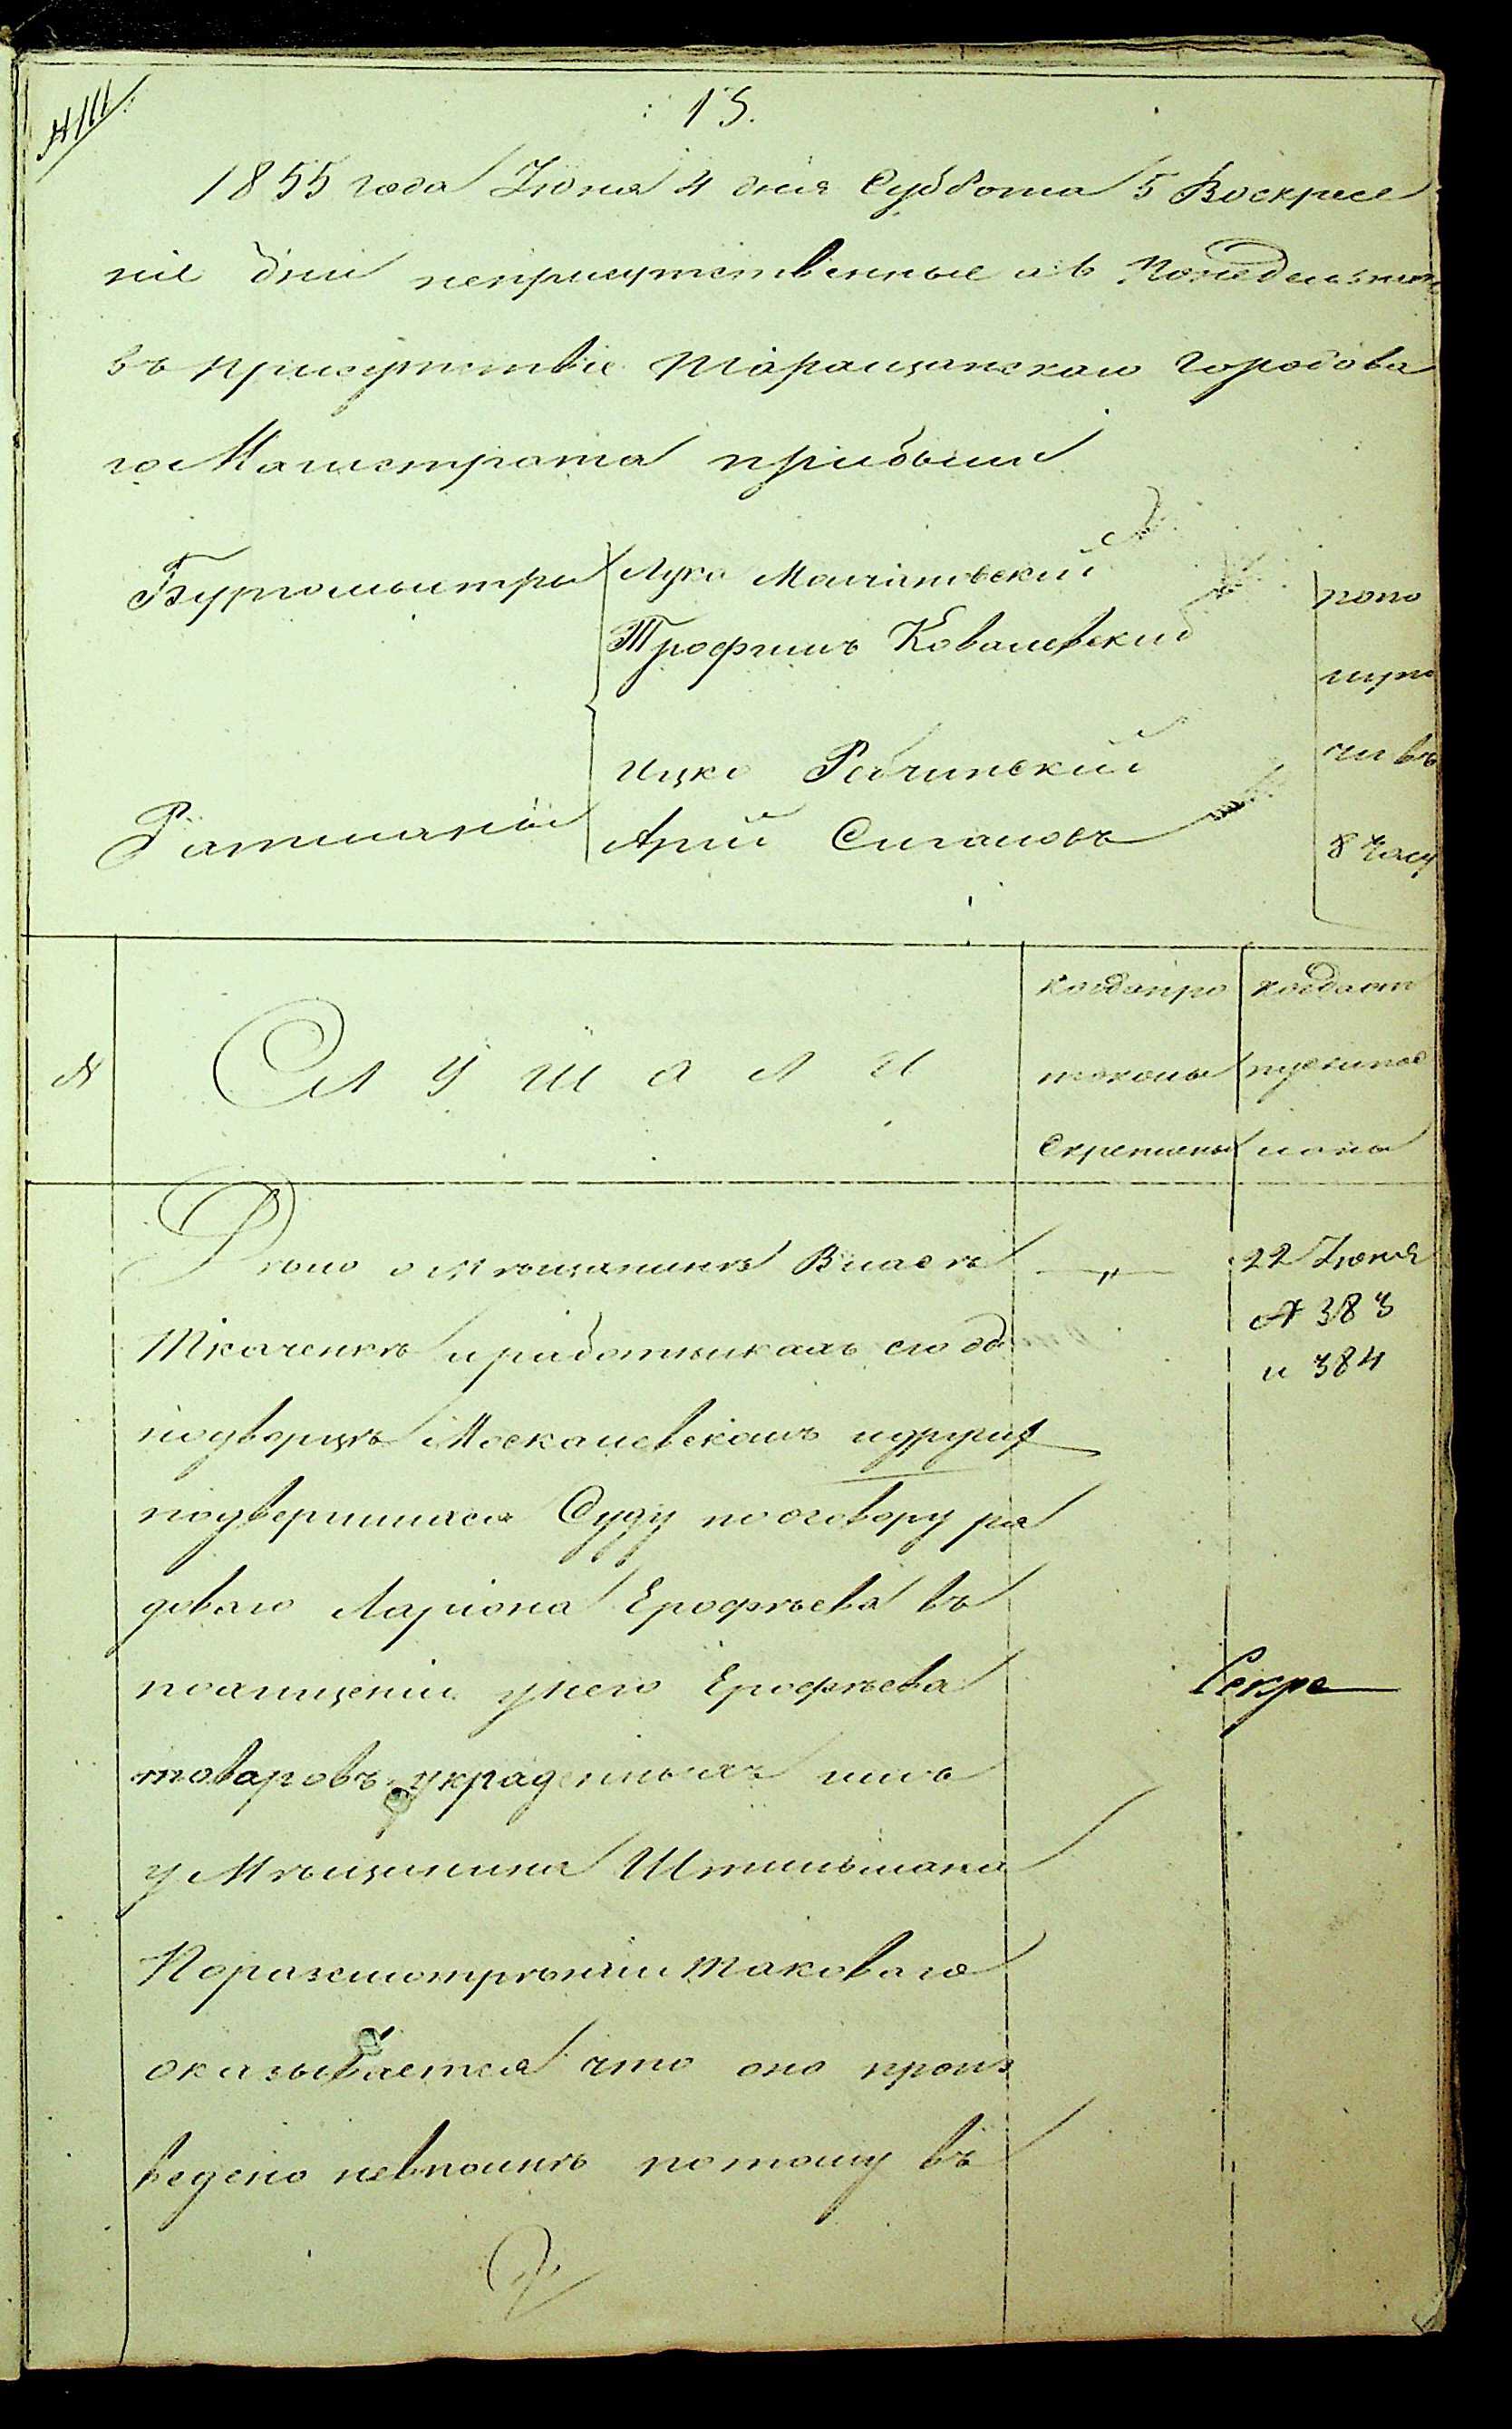 : 15.
1855 года Іюня 4 дня Суббота 5 Воскресе
ніе дни неприсутственные а 6 Понедельникъ
въ присутствіе Таращанскаго Городова
го Магистрата прибыли
Бургомистры Лука
Трофимъ Ковалевскій
Ицко
Ратманы Арій
попо
луно
чи въ
8 часу
№ Слушали
когда про
токолы
скреплены
когда от
пуск
Дѣло о мѣщанинѣ Власѣ
Ткаченкѣ и работникахъ его од
нодворцѣ Москалевскомъ и других
подвергшихся Суду по оговору ря
доваго Ларіона Ерофѣева въ
похищеніи у него Ерофѣева
товаровъ украденныхъ имъ
у Мѣщанина Штильмана
По разсмотрѣніи таковаго
оказывается что оно произ
ведено невполнѣ потому въ
— „ —
22 Іюня
№ 383
и 384
Секре